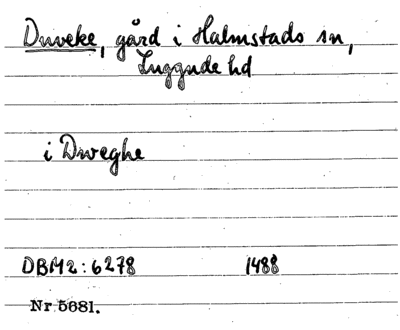 Duveke, gård i Halmstads sn,
Luggude hd
i Dweghe
DBM2:6278 1488
Nr 5681.